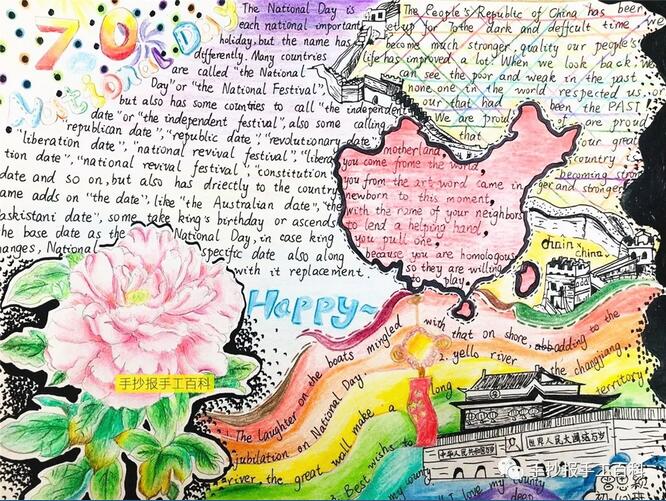 70
National Day
The National Day is
each national important
holiday, but the name has
differently. Many countries
are called "the National
Day" or "the National Festival",
but also has some countries to call "the independent
date" or "the independent festival", also some calling
"republican date", "republic date", "revolutionary date"
"liberation date", "national revival festival", "liber
tion date", "national revival festival", "constitution
date and so on, but also has driectly to the country
ame adds on "the date", like "the Australian date", "the
askistani date", some take king's birthday or ascends
the base date as the National Day, in case king
hanges, National specific date also along
with it replacement.
The People's Republic of China has been
set up for 70 the dark and deffcult time we
become much stronger. quality our people's
life has improved a lot! When we look back, we
can see the poor and weak in the past
none one in the world respected us, or
our that had been the PAST
We are proud of are proud
that our great
country
becoming stronger
ger and stronger
motherland,
you come frome the world,
you from the art word came in
newborn to this moment,
with the name of your neighbors
to lend a helping hand,
you pull one,
because you are homologous
so they are willing
to play.
chain
china
Happy~
The laughter on the boats mingled with that on shore, abbadding to the
jubilation on National Day 2. yello river the changjiang,
river, the great wall make a long territory
3. Best wishes to
my county I love my county
中华人民共和国万岁
世界人民大团结万岁
手抄报手工百科
手抄报手工百科